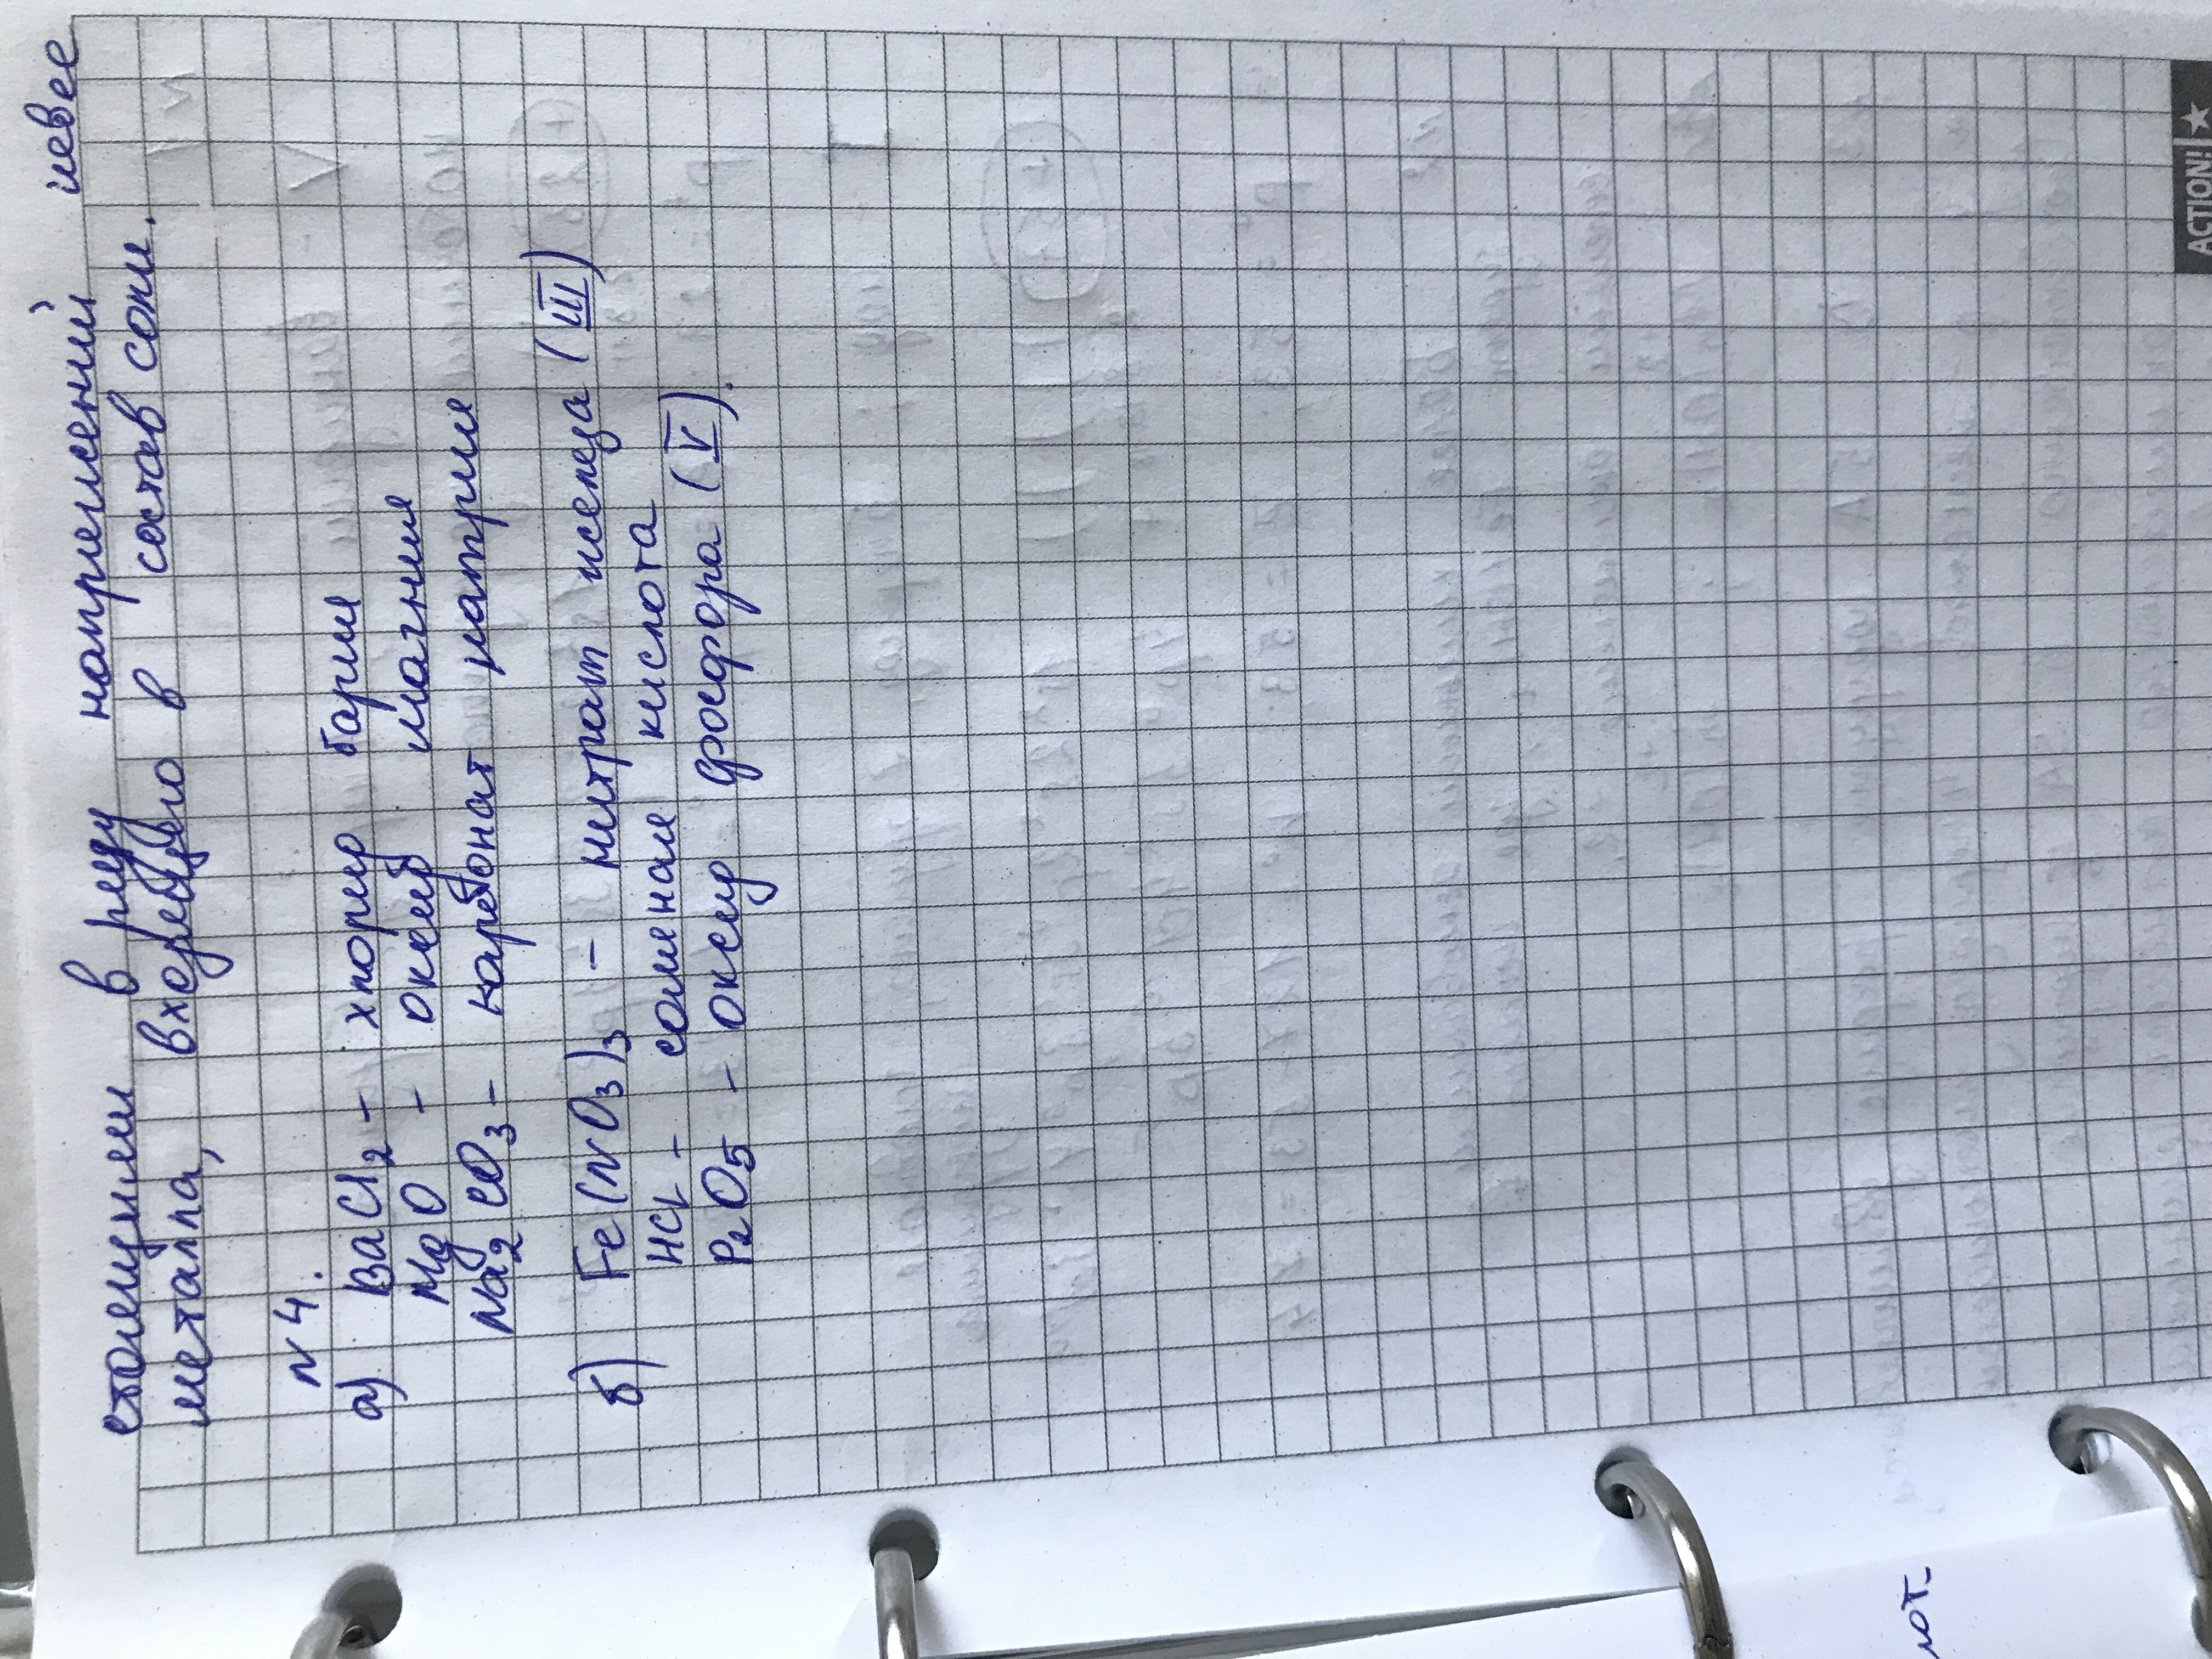 стоящими в ряду напряжений левее
металла, входящего в состав соли.
N 4.
а) BaCl2 - хлорид бария
MgO - оксид магния
Na2CO3 - карбонат натрия
б) Fe(NO3)3 - нитрат железа (III)
HCl - соляная кислота
P2O5 - оксид фосфора (V).
ACTION!
лот-